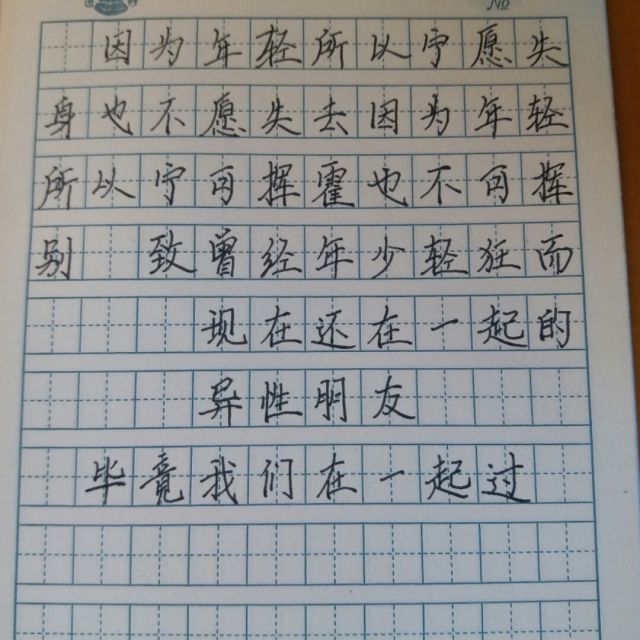 No
因为年轻所以宁愿失
身也不愿失去因为年轻
所以宁可挥霍也不可挥
别 致曾经年少轻狂而
现在还在一起的
异性朋友
毕竟我们在一起过